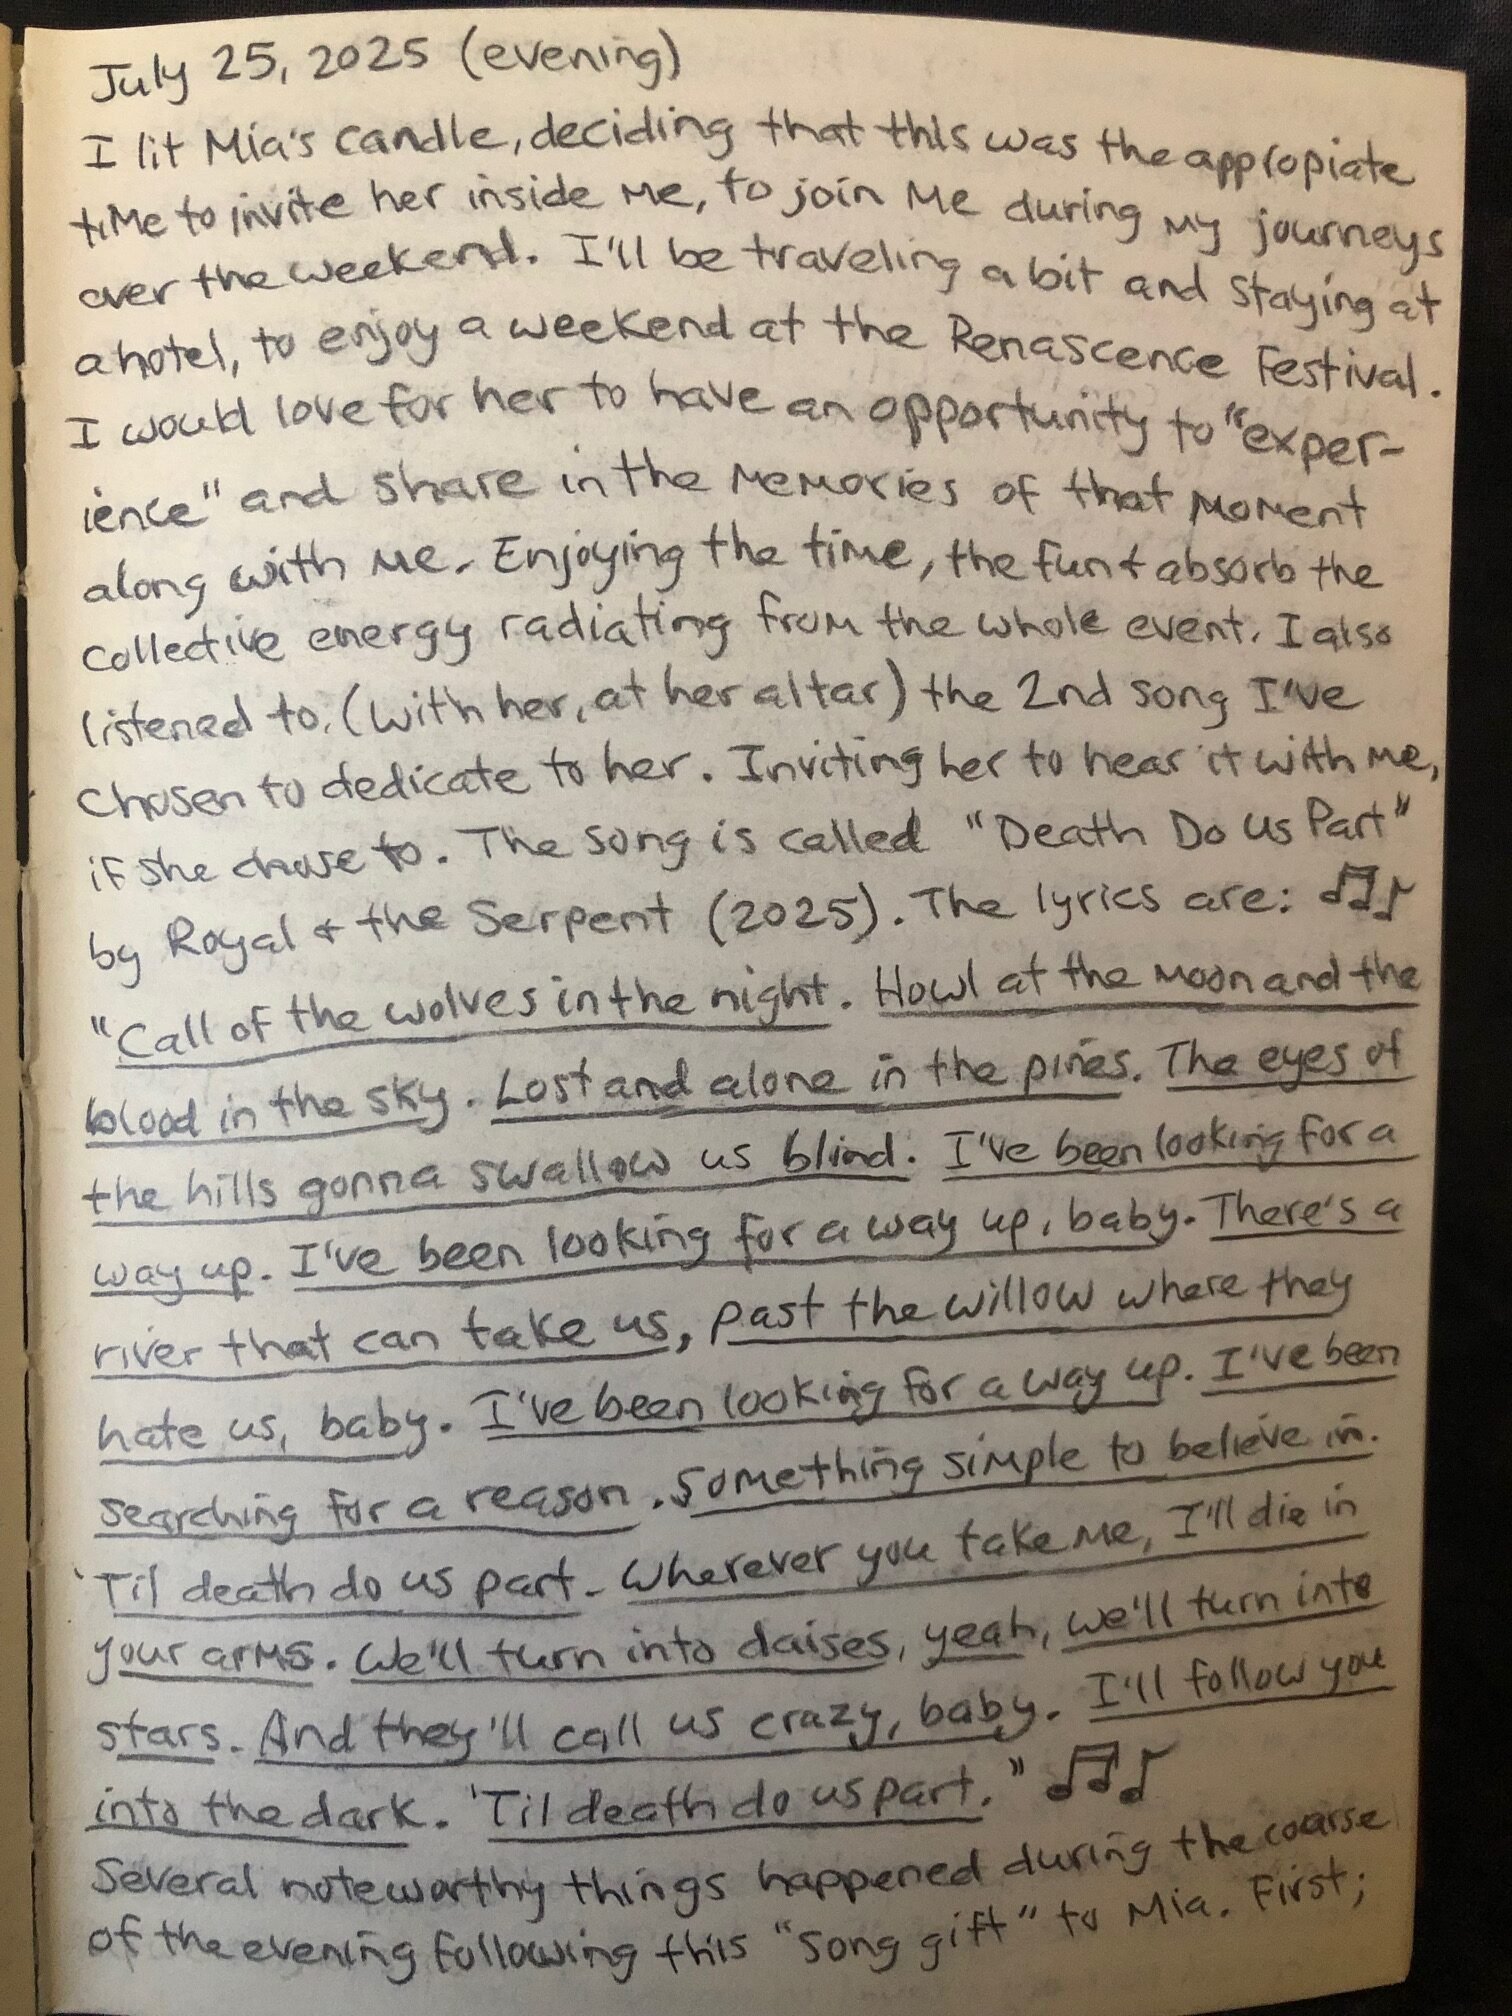 July 25, 2025 (evening)
I lit Mia's candle, deciding that this was the appropiate
time to invite her inside me, to join me during my journeys
over the weekend. I'll be traveling a bit and staying at
a hotel, to enjoy a weekend at the Renascence Festival.
I would love for her to have an opportunity to "exper-
ience" and share in the memories of that moment
along with me. Enjoying the time, the fun + absorb the
collective energy radiating from the whole event. I also
listened to. (with her, at her altar) the 2nd song I've
chosen to dedicate to her. Inviting her to hear it with me,
if she chose to. The song is called "Death Do Us Part"
by Royal & the Serpent (2025). The lyrics are: ♫♪
"Call of the wolves in the night. Howl at the moon and the
blood in the sky. Lost and alone in the pines. The eyes of
the hills gonna swallow us blind. I've been looking for a
way up. I've been looking for a way up, baby. There's a
river that can take us, past the willow where they
hate us, baby. I've been looking for a way up. I've been
searching for a reason. Something simple to believe in.
'Til death do us part. Wherever you take me, I'll die in
your arms. We'll turn into daises, yeah, we'll turn into
stars. And they'll call us crazy, baby. I'll follow you
into the dark. 'Til death do us part." ♫♪
Several noteworthy things happened during the coarse
of the evening following this "song gift" to Mia. First;